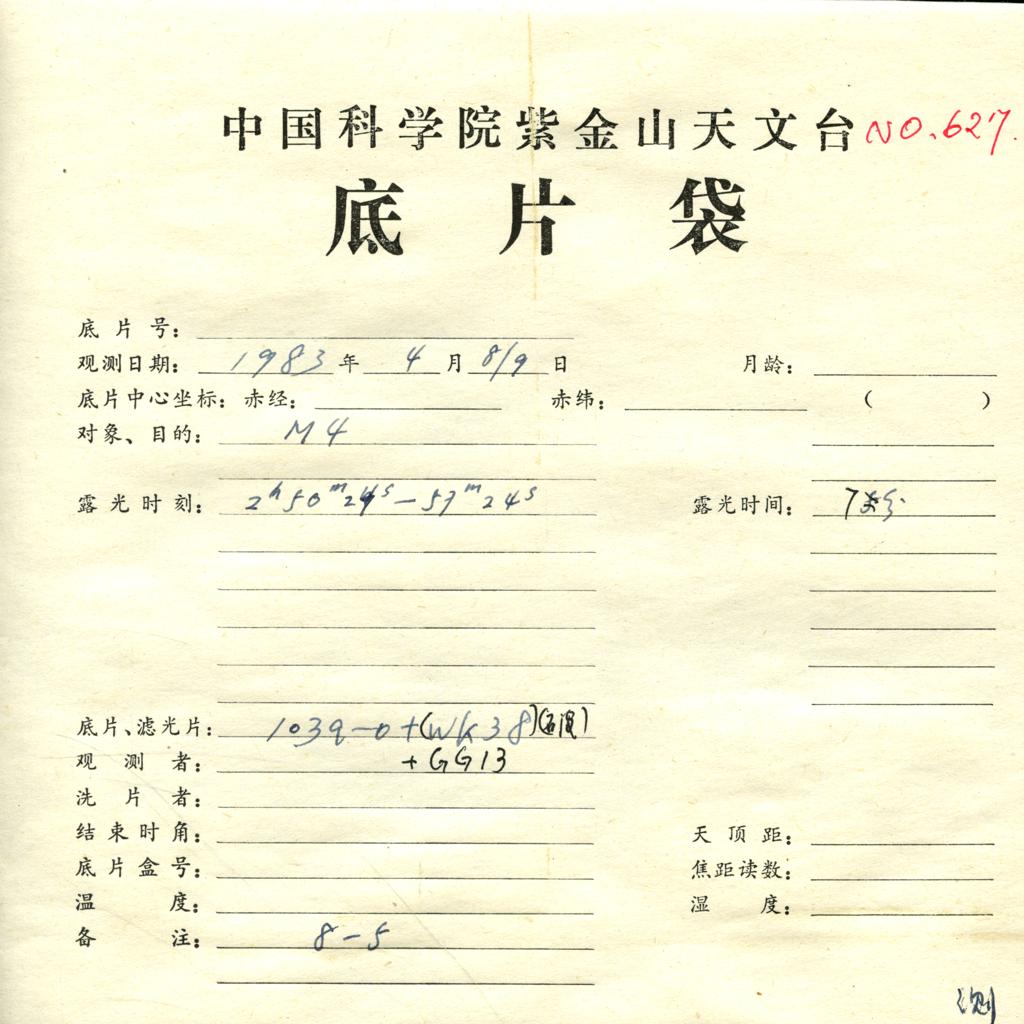 中国科学院紫金山天文台 NO.627.
底片袋
底片号:
观测日期: 1983年 4月 8/9日 月龄:
底片中心坐标: 赤经: 赤纬: ( )
对象、目的: M4
露光时刻: 2h50m24s-57m24s 露光时间: 7分
底片、滤光片: 103a-o+(WK38)
观测者: +GG13
洗片者:
结束时角: 天顶距:
底片盒号: 焦距读数:
温度: 湿度:
备注: 8-5
测